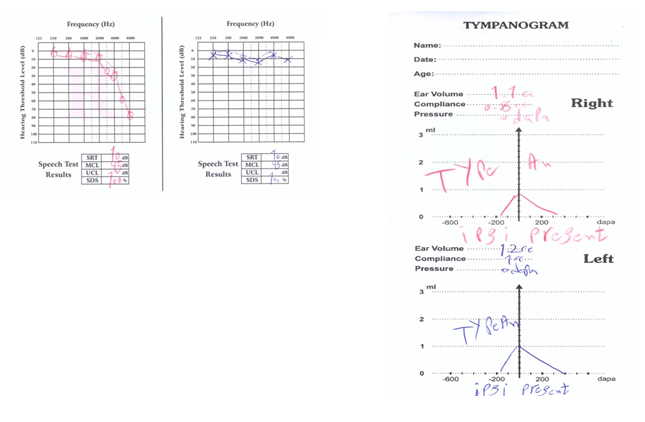 Frequency (Hz)
125 250 500 1000 2000 4000 8000
Hearing Threshold Level (dB)
0
10
20
30
40
50
60
70
80
90
100
110
Speech Test Results
SRT 10 dB
MCL 45 dB
UCL dB
SDS 100 %
Frequency (Hz)
125 250 500 1000 2000 4000 8000
Hearing Threshold Level (dB)
0
10
20
30
40
50
60
70
80
90
100
110
Speech Test Results
SRT 10 dB
MCL 45 dB
UCL dB
SDS %
TYMPANOGRAM
Name:
Date:
Age:
Ear Volume 1.1 cc
Compliance 0.8
Pressure 0 dapa
Right
3 ml
2
1
0
-600 -200 200 600 dapa
TYPe An
ipsi present
Ear Volume 1.2 cc
Compliance 1 cc
Pressure 0 dapa
Left
3 ml
2
1
0
-600 -200 200 dapa
TYPe An
ipsi present